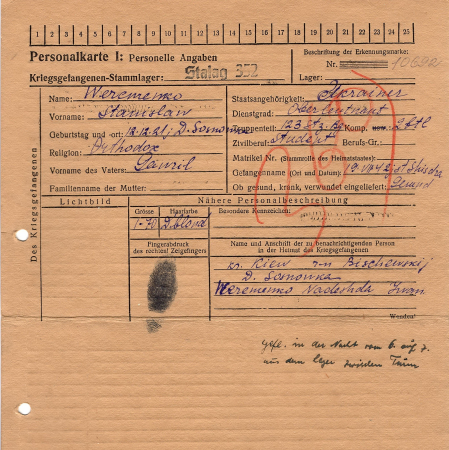 1 2 3 4 5 6 7 8 9 10 11 12 13 14 15 16 17 18 19 20 21 22 23 24 25
Personalkarte I: Personelle Angaben
Kriegsgefangenen-Stammlager: Stalag 352
Beschriftung der Erkennungsmarke:
Nr.
Lager:
Des Kriegsgefangenen
Name: Weremenko
Vorname: Stanislaw
Geburtstag und -ort: 18.12.21, D. Somonka
Religion: Orthodox
Vorname des Vaters: Gawril
Familienname der Mutter:
Staatsangehörigkeit: Ukrainer
Dienstgrad: Oberleutnant
Truppenteil: 123 Komp. usw.
Zivilberuf: Student Berufs-Gr.
Matrikel Nr. (Stammrolle des Heimatstaates):
Gefangennahme (Ort und Datum):
Ob gesund, krank, verwundet eingeliefert: Gesund
Lichtbild
Nähere Personalbeschreibung
Grösse
1-70
Haarfarbe
D.blond
Besondere Kennzeichen:
Fingerabdruck
des rechten! Zeigefingers
Name und Anschrift der zu benachrichtigenden Person
in der Heimat des Kriegsgefangenen
Kiew
D. Somonka
Weremenko Nadeshda Iwan
Wenden!
gefl. in der Nacht vom 6. auf 7.
aus dem Lager